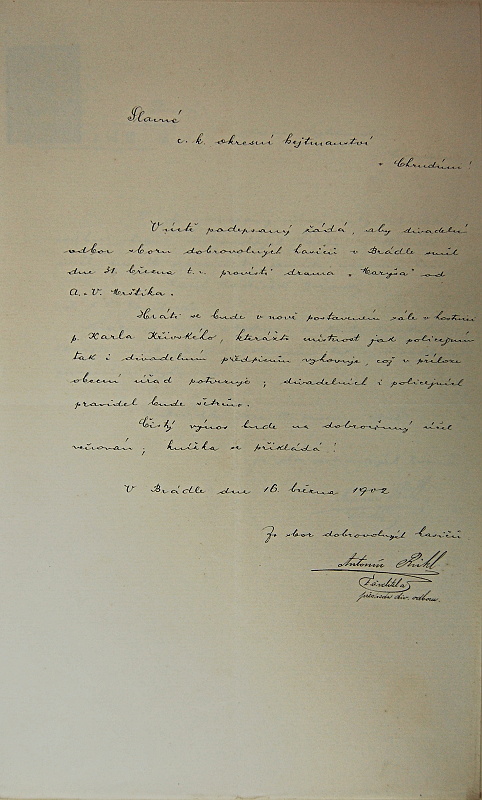 Slavné
c. k. okresní hejtmanství
v Chrudimi!
V úctě podepsaný žádá, aby divadelní
odbor sboru dobrovolných hasičů v Brádle směl
dne 31. března t. r. provésti drama „Maryša" od
A. a V. Mrštíka.
Hráti se bude v nově postaveném sále v hostinci
p. Karla Křivského, kterážto místnost jak policejním
tak i divadelním předpisům vyhovuje, což v příloze
obecní úřad potvrzuje; divadelních i policejních
pravidel bude šetřeno.
Čistý výnos bude na dobročinný účel
věnován; knížka se přikládá!
V Brádle dne 16. března 1902
Za sbor dobrovolných hasičů
Antonín
div. odboru.